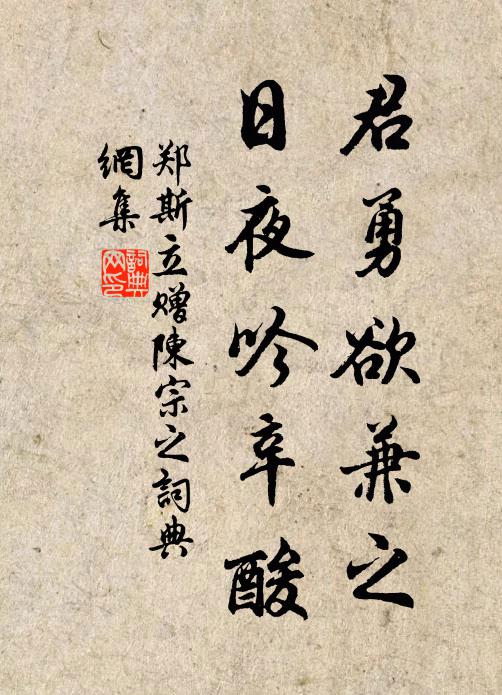 君勇欲兼之
日夜吟辛酸
郑斯立赠陳宗之詞典
網集
詞典网印